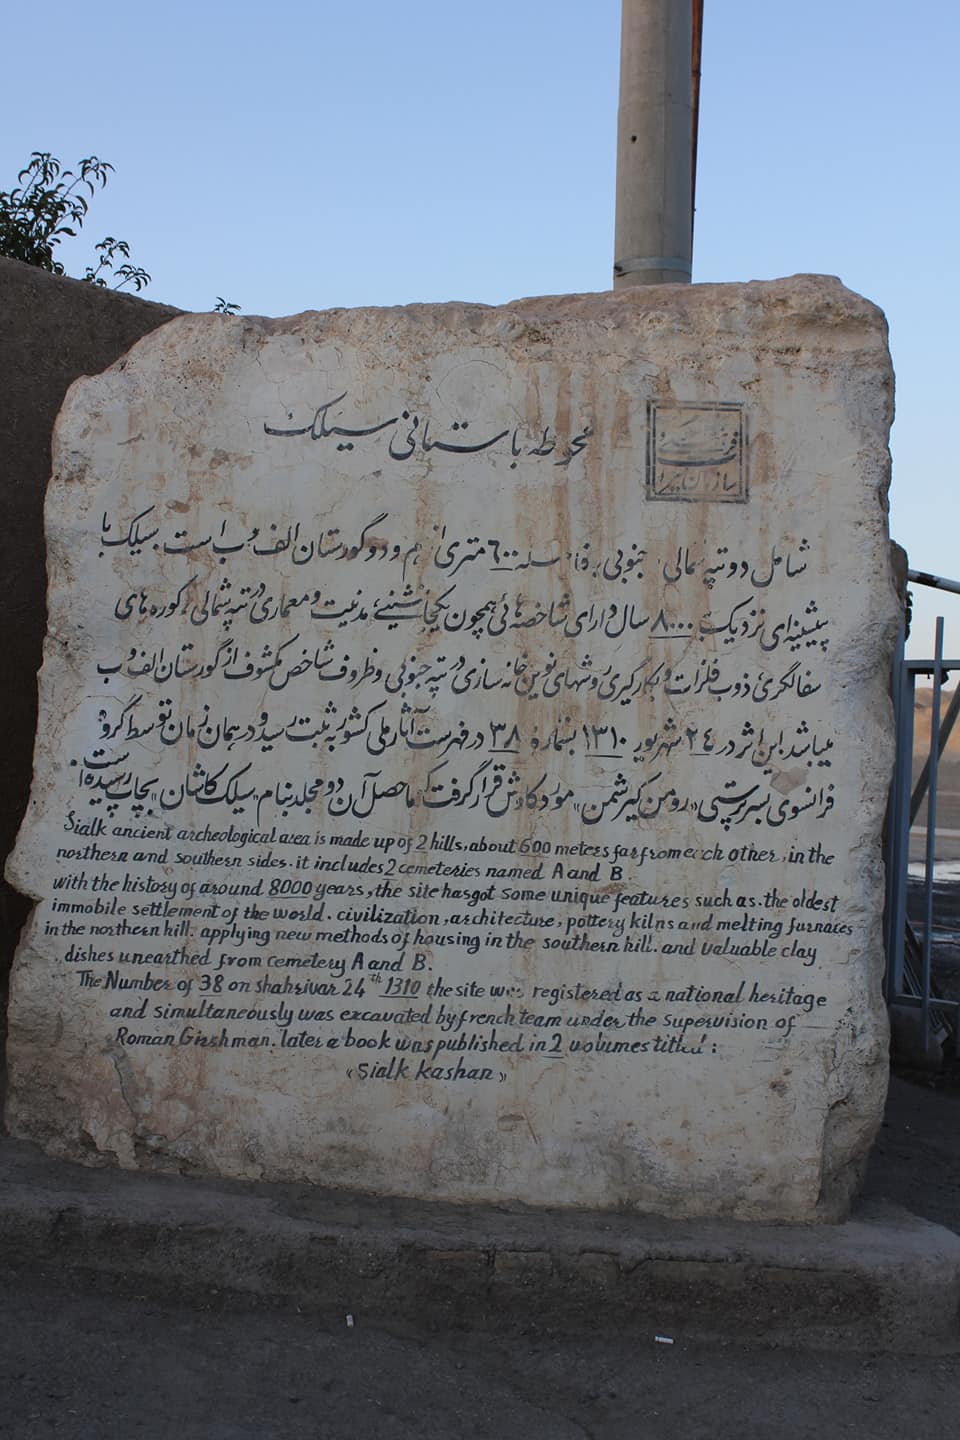 محوطه باستانی سیلک
شامل دو تپه شمالی جنوبی بفاصله ٦٠٠ متری از هم و دو گورستان الف و ب است. سیلک با
پیشینه‌ای نزدیک ٨٠٠٠ سال دارای شاخصه هائی همچون یکجانشینی مدنیت و معماری در تپه شمالی، کوره های
سفالگری ذوب فلزات و بکارگیری روشهای نوین خانه سازی در تپه جنوبی و ظروف شاخص مکشوف از گورستان الف و ب
میباشد این اثر در ٢٤ شهریور ١٣١٠ بشماره ٣٨ در فهرست آثار ملی کشور به ثبت رسید و در همان زمان توسط گروه
فرانسوی بسرپرستی «رومن گیرشمن» مورد کاوش قرار گرفت که ماحصل آن دو مجلد بنام «سیلک کاشان» بچاپ رسیده است.
Sialk ancient archeological area is made up of 2 hills, about 600 meters far from each other, in the
northern and southern sides. it includes 2 cemeteries named A and B.
with the history of around 8000 years, the site has got some unique features such as. the oldest
immobile settlement of the world. civilization, architecture, pottery kilns and melting furnaces
in the northern hill. applying new methods of housing in the southern hill. and valuable clay
dishes unearthed from cemetery A and B.
The Number of 38 on shahrivar 24th 1310 the site was registered as a national heritage
and simultaneously was excavated by french team under the supervision of
Roman Girshman. later a book was published in 2 volumes titled:
«sialk kashan»